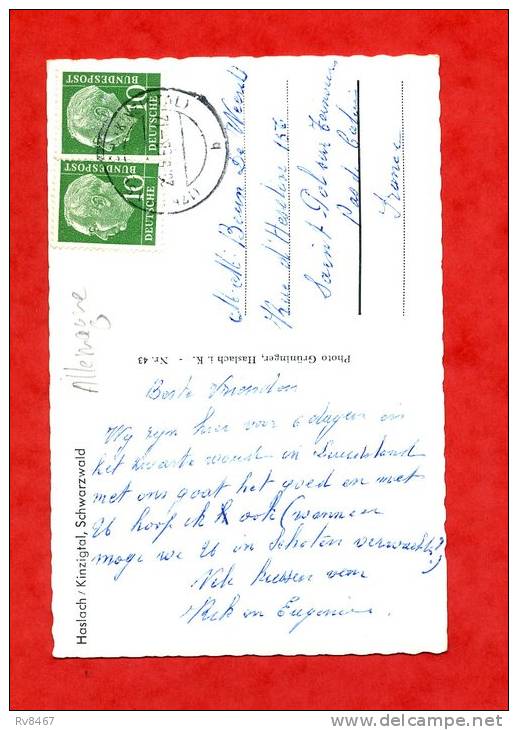 DEUTSCHE
BUNDESPOST
10
DEUTSCHE
BUNDESPOST
10
(17b)
b
Allemagne
M. M. Beun De
Rue d'Hesdin 153
Saint Pol sur Ternoise
Pas de Calais
France
Photo Grüninger, Haslach i. K. - Nr. 43
Haslach / Kinzigtal, Schwarzwald
Beste Vrienden
Wij zijn hier voor 6 dagen in
het zwarte woud in Duitsland
met ons gaat het goed en met
U hoop ik ook (wanneer
mogen we U in Schoten verwachten?)
Vele kussen van
Rik en Eugenie
Rv8467
delcampe.net